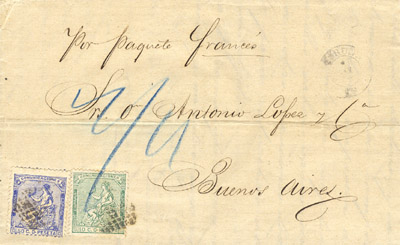 Por Paquete Francés
Sr. D. Antonio Lopez y Ca
Buenos Aires.